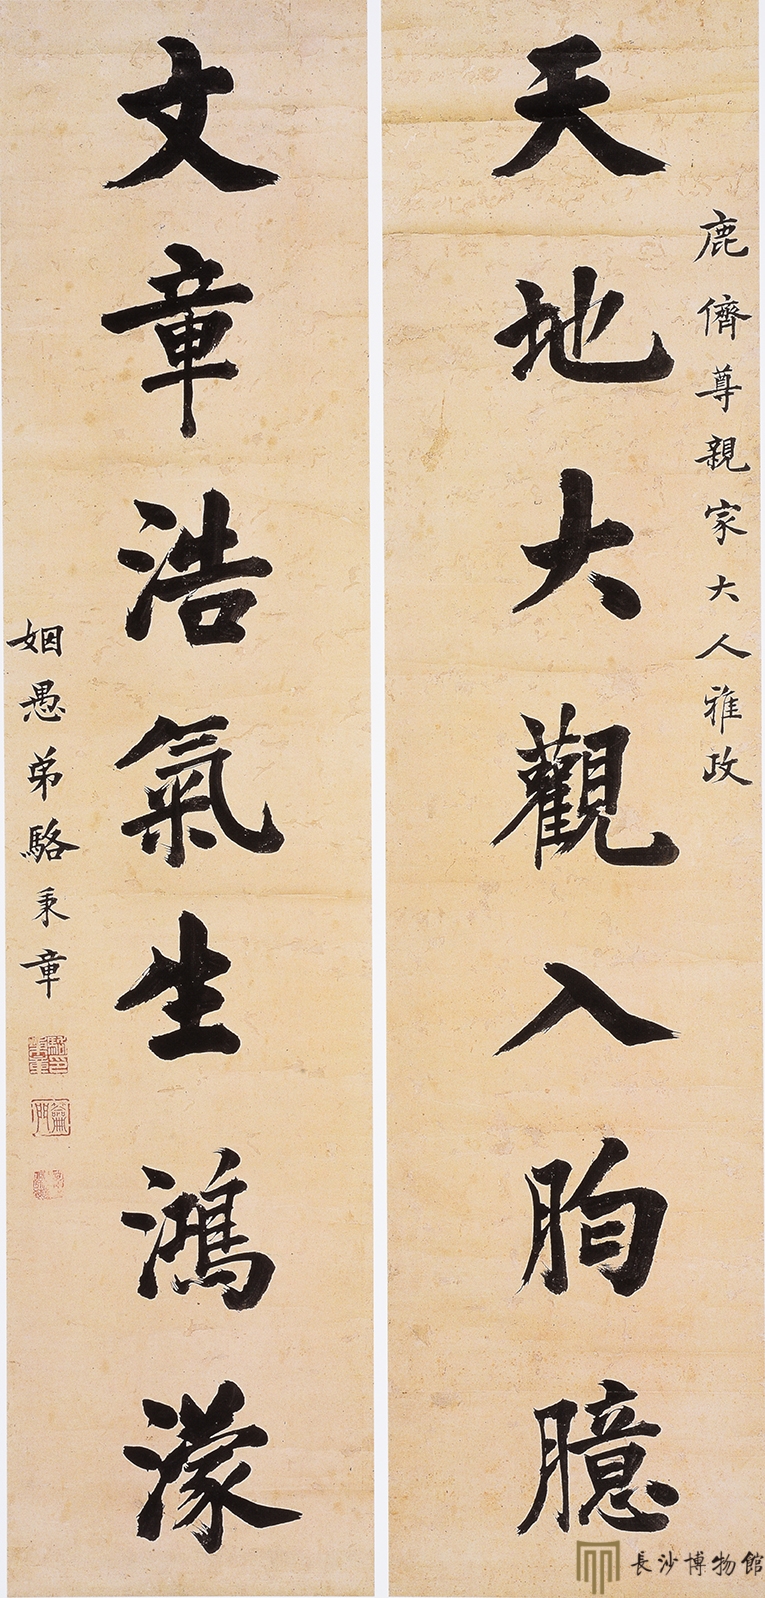 鹿儕尊親家大人雅政
天地大觀入胷臆
文章浩氣生鴻濛
姻愚弟駱秉章
駱印秉章
籥門
長沙博物館